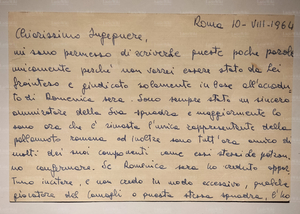 Roma 10-VIII-1964
Chiarissimo Ingegnere,
mi sono permesso di scriverle queste poche parole
unicamente perché non vorrei essere stato da Lei
frainteso e giudicato solamente in base all'accaduto
di Domenica sera. Sono sempre stato un sincero
ammiratore della Sua squadra e maggiormente lo
sono ora che è rimasta l'unica rappresentante della
pallanuoto romana ed inoltre sono tutt'ora amico di
molti dei suoi componenti come essi stessi le potran-
no confermare. Se Domenica sera ho creduto oppor-
tuno incitare, e non credo in modo eccessivo, qualche
giocatore del Camogli o questa stessa squadra, l'ho